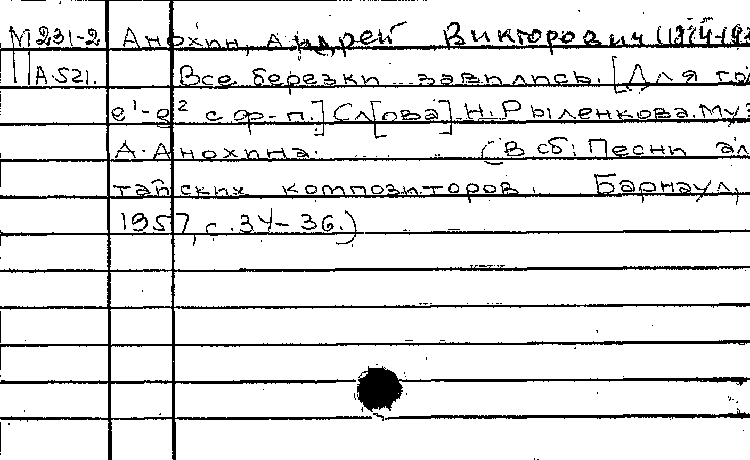 М231-2 Анохин, Андрей Викторович (1874-19
А521. Все березки завились. [Для го
e¹-g² с ф-п.] Сл[ова] Н. Рыленкова. Муз
А. Анохина. (В сб: Песни ал
тайских композиторов. Барнаул,
1957, с. 34-36.)